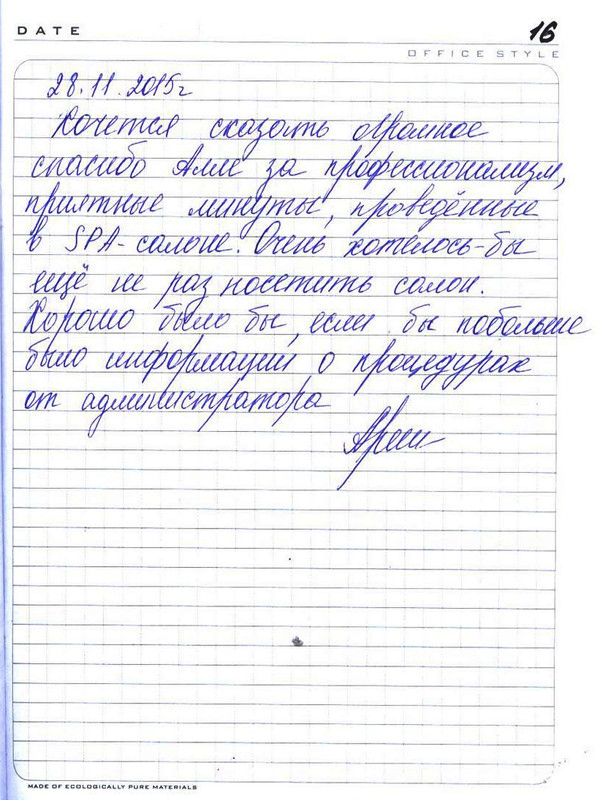 DATE
16
OFFICE STYLE
28.11.2015г
Хочется сказать огромное
спасибо Алле за профессионализм,
приятные минуты, проведённые
в SPA-салоне. Очень хотелось-бы
ещё не раз посетить салон.
Хорошо было бы, если бы побольше
было информации о процедурах
от администратора
MADE OF ECOLOGICALLY PURE MATERIALS